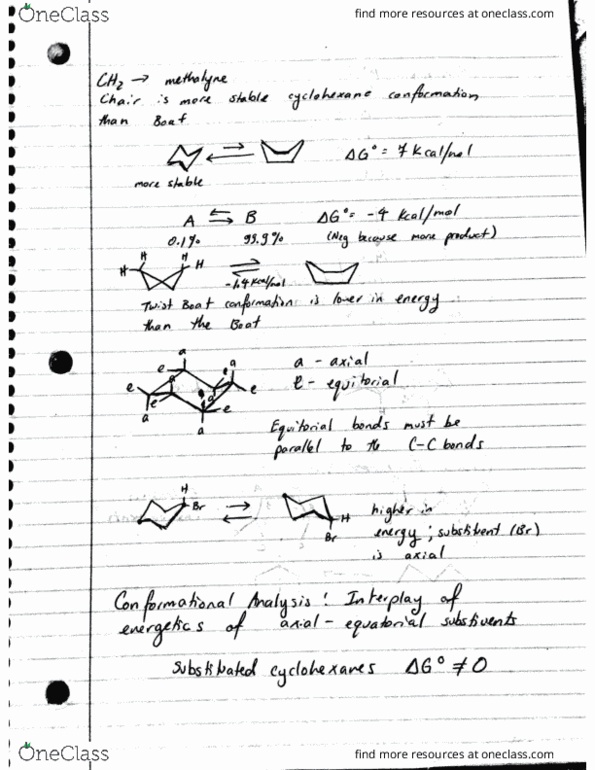 OneClass
find more resources at oneclass.com
CH2 → metholyne
Chair is more stable cyclohexane conformation
than Boat
ΔG° = 7 Kcal/mol
more stable
A ⇆ B ΔG° = -4 Kcal/mol
0.1% 99.9% (Neg because more product)
H H
H H
-1.4 kcal/mol
Twist Boat conformation is lower in energy
than the Boat
a a - axial
e a a e - equitorial
e a e
e a e
a a
Equitorial bonds must be
parallel to the C-C bonds
H
Br higher in
H energy; substituent (Br)
Br is axial
Conformational Analysis: Interplay of
energetics of axial-equatorial substivents
Substibated cyclohexanes ΔG° ≠ 0
OneClass
find more resources at oneclass.com